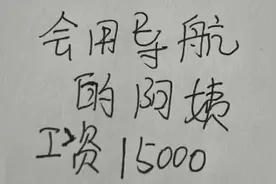 会用导航
的阿姨
工资15000